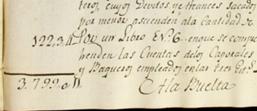 treros, cuyos Devitos ye trances sacados
por menor ascienden ala Cantidad de
1223 „ Por un Libro E N.6. en que se com
penden las Cuentas delos Caporales
y Baqueros empleados en las tres
3.799. „
Ala Buelta